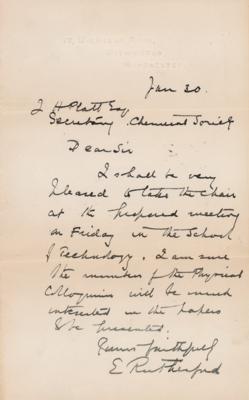 17, Wilmslow Road,
Withington,
Manchester.
Jan 20.
J H Platt Esq
Secretary Chemical Society
Dear Sir
I shall be very
pleased to take the chair
at the proposed meeting
on Friday in the School
of Technology. I am sure
the members of the Physical
Colloquium will be much
interested in the papers
to be presented.
Yours faithfully
E Rutherford